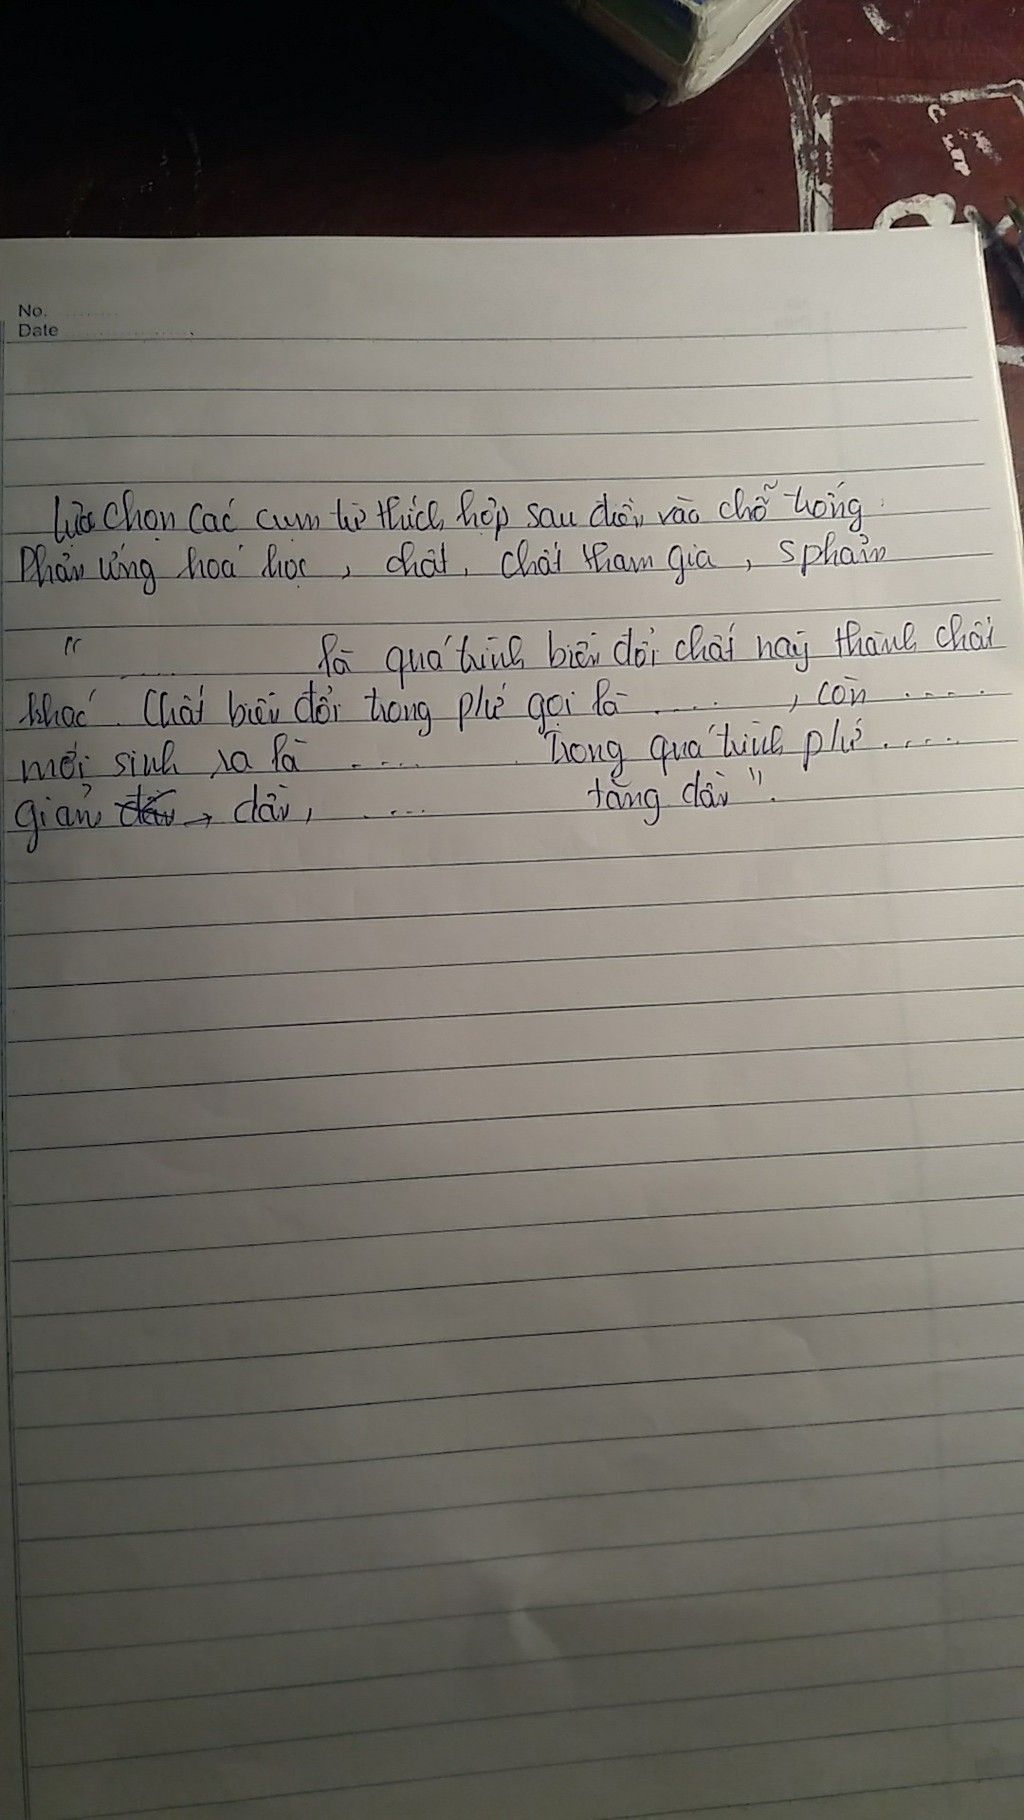 No.
Date
Lựa chọn các cụm từ thích hợp sau điền vào chỗ trống:
Phản ứng hoá học, chất, chất tham gia, sphẩm
".... là quá trình biến đổi chất này thành chất
khác. Chất biến đổi trong phứ gọi là ...., còn ....
mới sinh ra là .... Trong quá trình phứ ....
giảm dần, .... tăng dần".